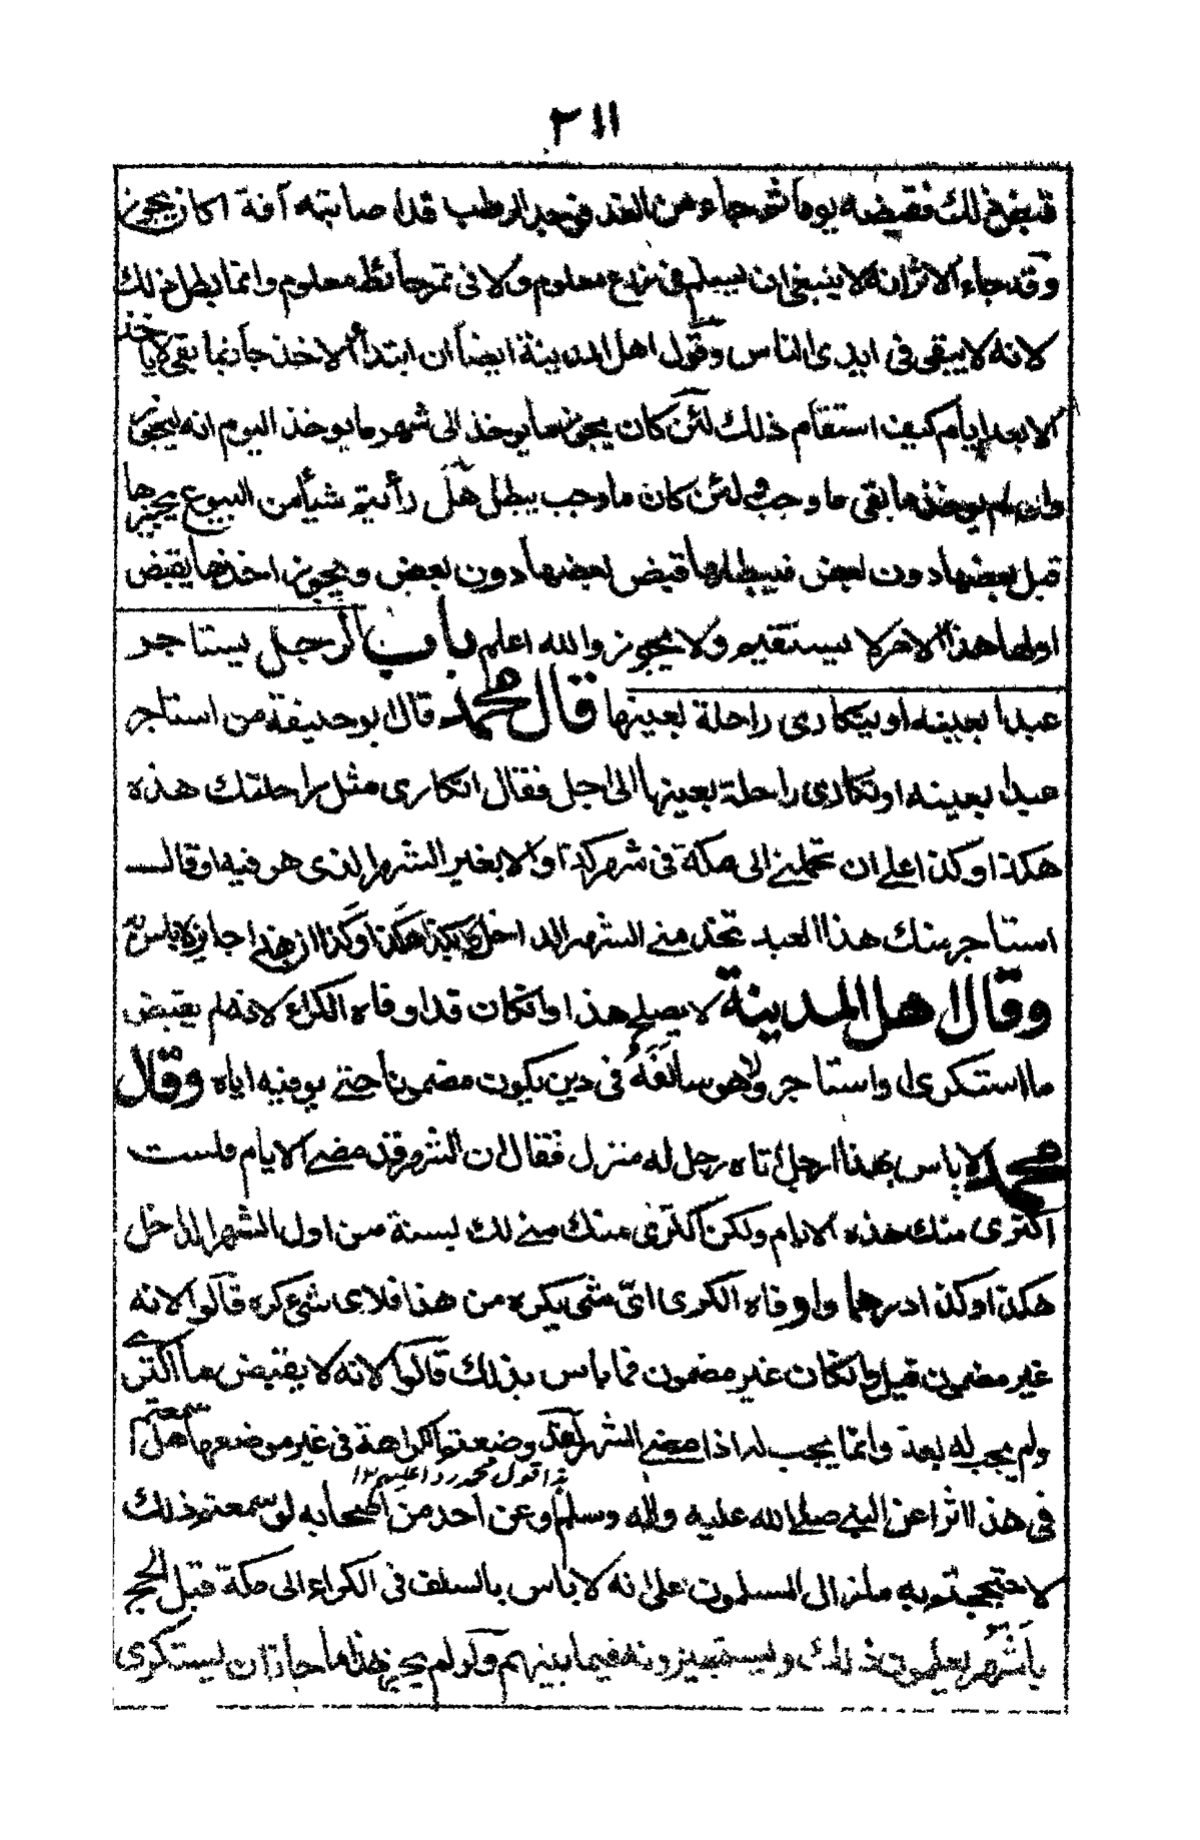 ٢١١
قبض ذلك فقبضه يوما ثم جاء من الغد فوجد الرطب قد اصابته آفة اكان يجوز
وقد جاء الاثر انه لا ينبغى ان يسلم فى زرع معلوم ولا فى تمر حائط معلوم وانما بطل ذلك
لانه لا يبقى فى ايدى الناس وقول اهل المدينة ايضا ان ابتدأ الاخذ جاز فما بقى لا ياخذ
الا بعد ايام كيف استقام ذلك لئن كان يجوز ما يوخذ الى شهر ما يوخذ اليوم انه ليجوز
وان لم يوخذ ما بقى ما وجب ولئن كان ما وجب يبطل هل رأيتم شيأ من البيوع يجيزها
قبل بعضها دون بعض فيبطلها قبض بعضها دون بعض ويجوز اخذها بقبض
اولها هذا الامر لا يستقيم ولا يجوز والله اعلم باب الرجل يستاجر
عبدا بعينه او يتكارى راحلة بعينها قال محمد قال ابو حنيفة من استاجر
عبدا بعينه او تكارى راحلة بعينها الى اجل فقال اتكارى مثل راحلتك هذه
هكذا وكذا على ان تحملنى الى مكة فى شهر كذا اولا بغير الشهر الذى هو فيه او قال
استاجر منك هذا العبد تخدمنى الشهر الداخل بكذا هكذا وكذا ان هذا جايز لا باس به
وقال اهل المدينة لا يصلح هذا وان كان قد اوفاه الكراء لانه لم يقبض
ما استكرى او استاجر ولا هو سالفه فى دين يكون مضمونا حتى يوفيه اياه وقال
محمد لا باس بهذا ارجل اتاه رجل له منزل فقال ان الشهر قد مضى الايام ولست
اكترى منك هذه الايام ولكن اكترى منك منزلك لسنة من اول الشهر الداخل
هكذا وكذا درهما واوفاه الكرى اىّ شى يكره من هذا فلاى شئ كره قالوا لانه
غير مضمون قيل وان كان غير مضمون فما باس بذلك قالوا لانه لا يقبض ما اكترى
ولم يجب له بعد وانما يجب له اذا مضى الشهر لقد وضعتم الكراهة فى غير موضعها هل سمعتم
هذا قول محمد ردا عليهم ١٢
فى هذا اثرا عن النبى صلى الله عليه واله وسلم او عن احد من اصحابه لو سمعتم ذلك
لاحتججتم به ما زال المسلمون على انه لا باس بالسلف فى الكراء الى مكة قبل الحج
باشهر يعلمون ذلك ويستجيزونه فيما بينهم ولو لم يجز هذا ما جاز ان يستكرى